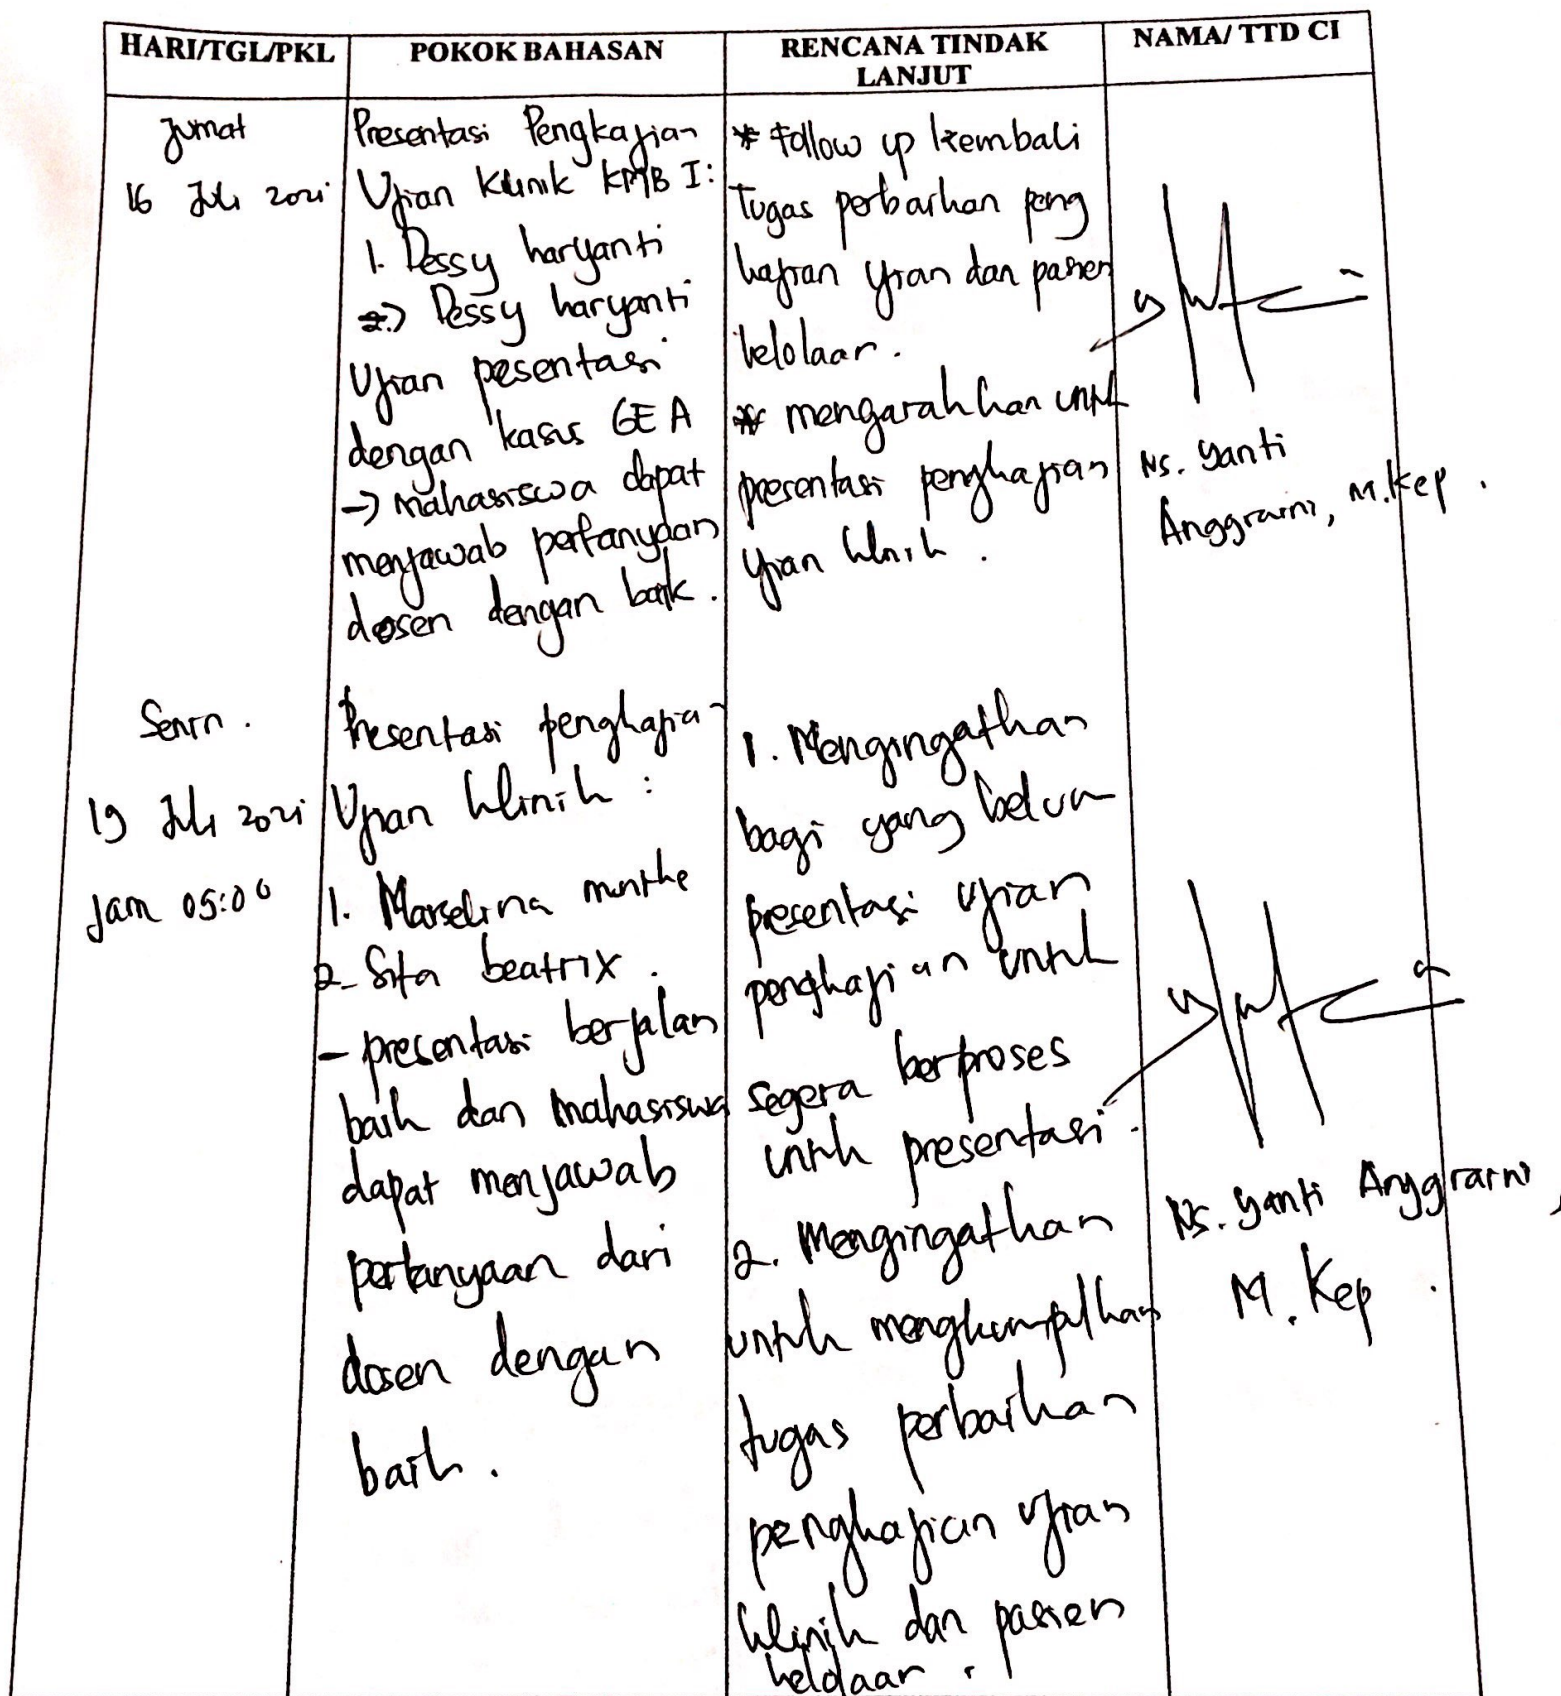 HARI/TGL/PKL
POKOK BAHASAN
RENCANA TINDAK
LANJUT
NAMA/ TTD CI
Jumat
16 Juli 2021
Presentasi Pengkajian
Ujian Klinik KMB I:
1. Dessy haryanti
=> Dessy haryanti
Ujian pesentasi
dengan kasus GEA
-> mahasiswa dapat
menjawab pertanyaan
dosen dengan baik.
* Follow up kembali
Tugas perbaikan peng
kajian ujian dan pasien
kelolaan.
* mengarahkan untuk
presentasi pengkajian
ujian klinik.
Ns. Yanti
Anggraini, M.Kep.
Senin.
19 Juli 2021
Jam 05:00
Presentasi pengkajian
Ujian klinik :
1. Marselina munthe
2. Sita beatrix.
- presentasi berjalan
baik dan mahasiswa
dapat menjawab
pertanyaan dari
dosen dengan
baik.
1. Mengingatkan
bagi yang belum
presentasi ujian
pengkajian untuk
segera berproses
untuk presentasi.
2. Mengingatkan
untuk mengkumpulkan
tugas perbaikan
pengkajian ujian
klinik dan pasien
kelolaan.
Ns. Yanti Anggraini,
M. Kep.